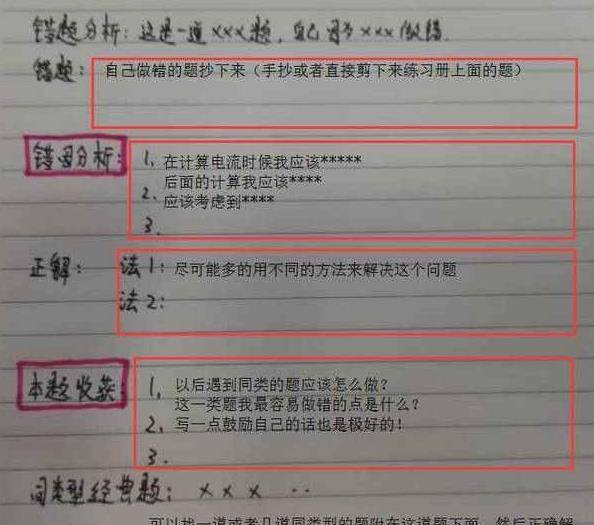 错题分析：这是一道×××题，自己因为×××做错.
错题：自己做错的题抄下来（手抄或者直接剪下来练习册上面的题）
错因分析：1、在计算电流时候我应该*****
后面的计算我应该****
2、应该考虑到****
3、
正解：法1：尽可能多的用不同的方法来解决这个问题
法2：
本题收获：1、以后遇到同类的题应该怎么做？
这一类题我最容易做错的点是什么？
2、写一点鼓励自己的话也是极好的！
3、
同类型经典题：× × × ··
可以找一道或者几道同类型的题附在这道题下面，然后正确解